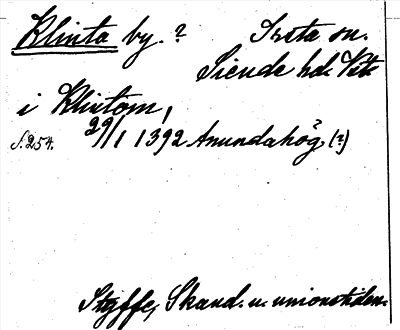 Klinta by. ? Irsta sn.
Siende hd. Vstm.
i Klintom,
S. 254. 29/1 1392 Anundahög (?)
Styffe, Skand. u. unionstiden.